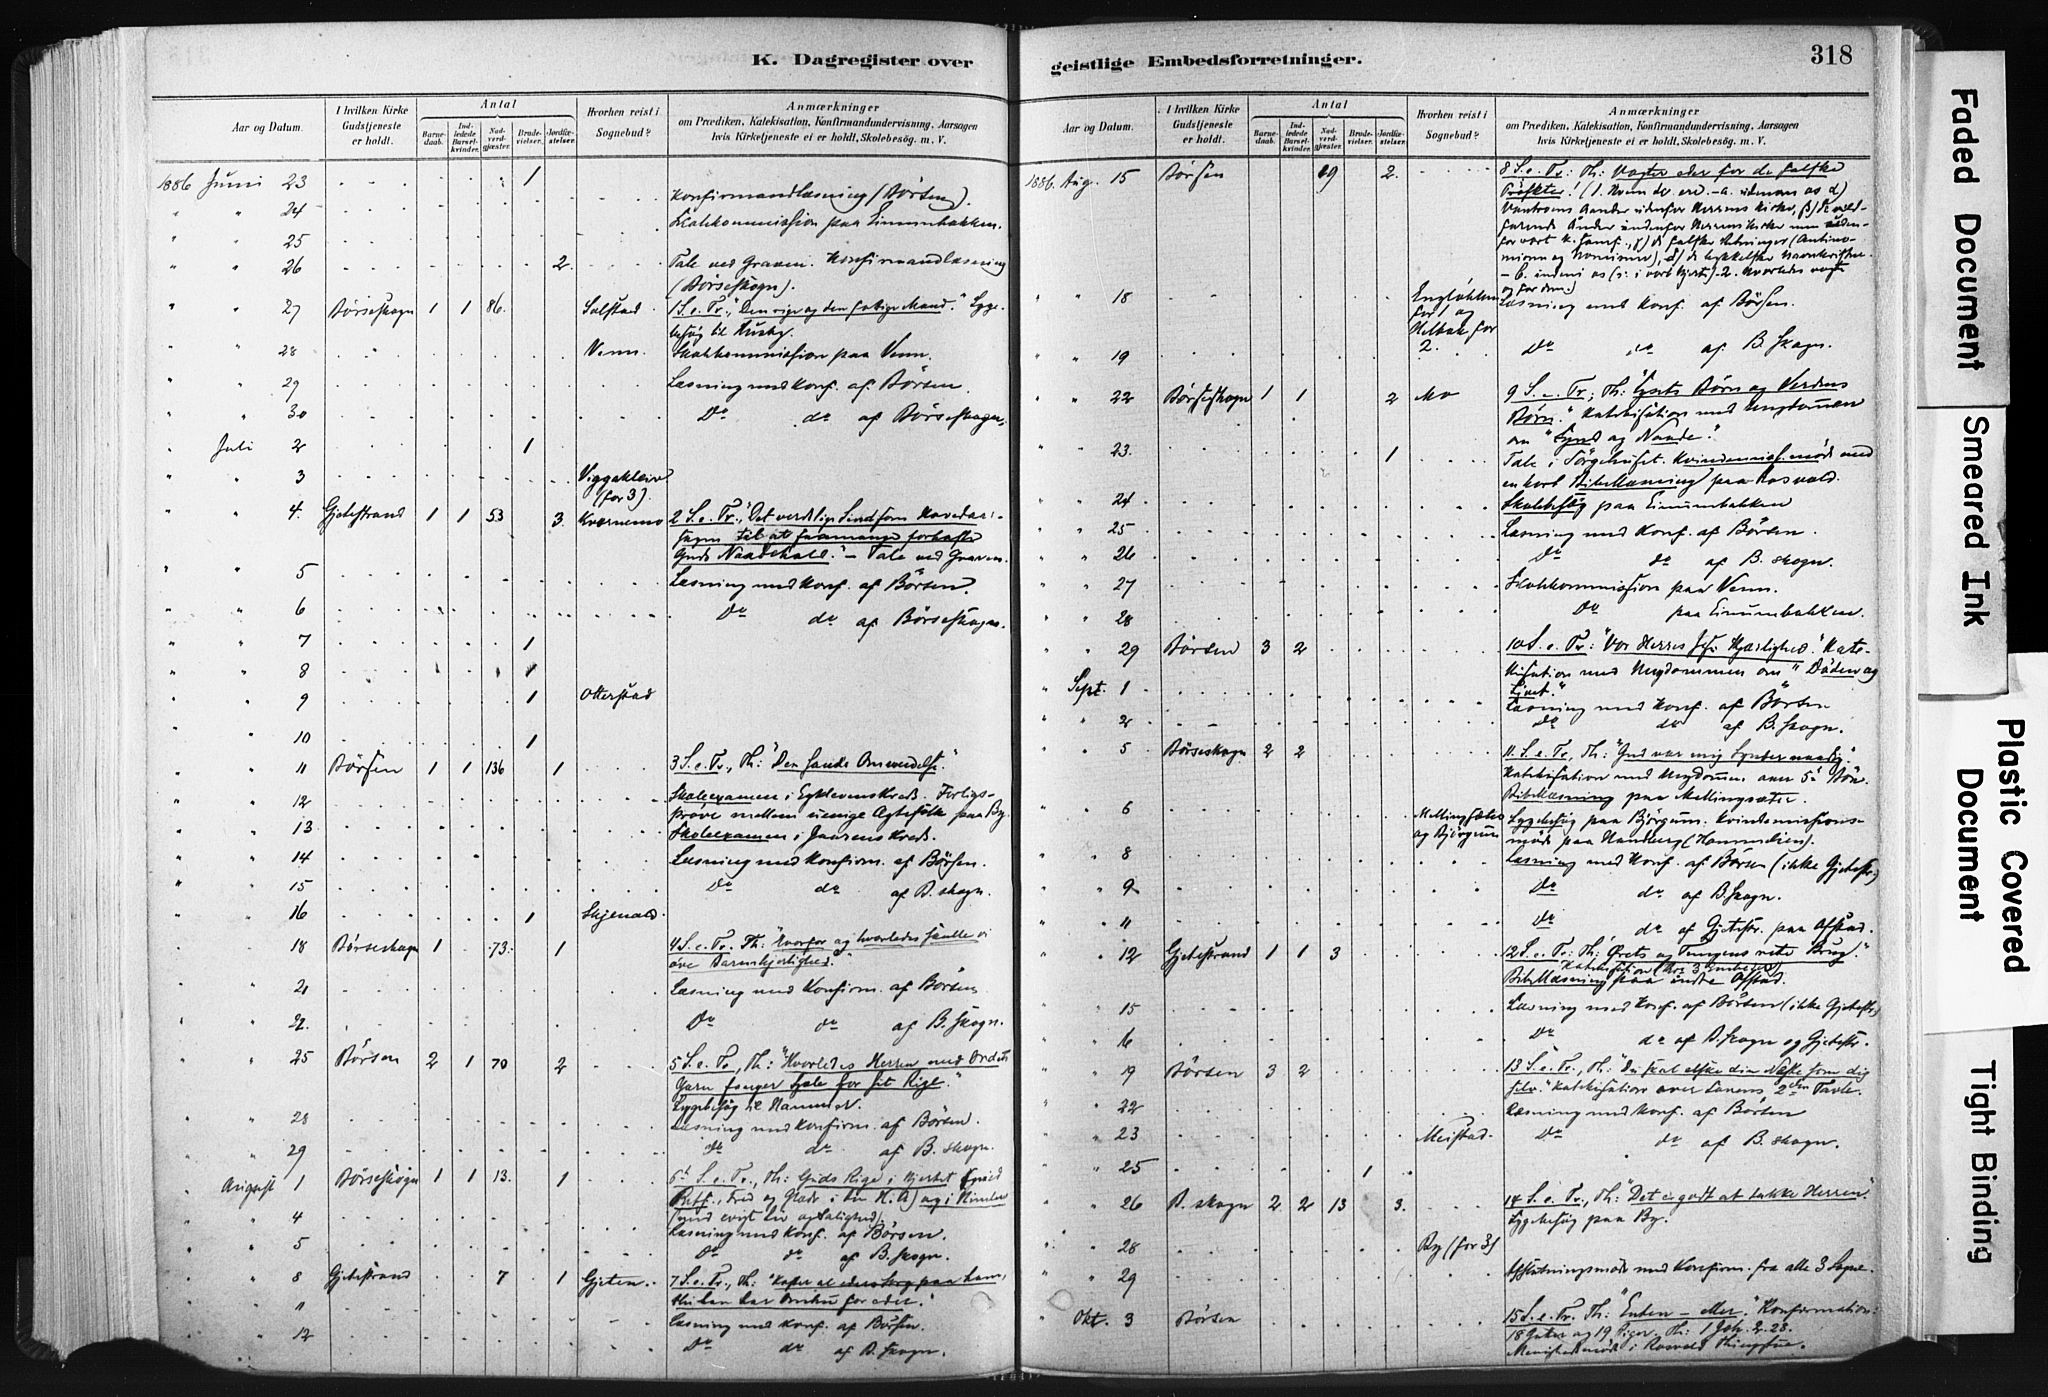 K. Dagregister over
Aar og Datum.
I hvilken Kirke Gudstjeneste er holdt.
Antal
Barne-daab.
Ind-ledede Barsel-kvinder.
Nad-verd-gjæster.
Brude-vielser.
Jordfæ-stelser.
Hvorhen reist i Sognebud?
Anmærkninger
om Prædiken, Katekisation, Konfirmandundervisning, Aarsagen
hvis Kirketjeneste ei er holdt, Skolebesög. m. V.
1886 Juni 23 1
Konfirmandlæsning (Börsen).
" " 24 Skolekommission paa Einumbakken.
" " 25
" " 26 2. Tale ved Graven. Konfirmandlæsning
(Börseskogn).
" " 27 Börseskogn 1 1 86. Solstad 1 S. e. Tr., "Den rige og den fattige Mand." Syge-
besög til Husby.
" " 28 Venn. Skolekommission paa Venn.
" " 29 Læsning med Konf. af Börsen.
" " 30 Do do af Börseskogn.
" Juli 2 1
" " 3 Viggakleiv
(for 3).
" " 4. Gjetestrand 1 1 53 3.
Guds Naadekald." - Tale ved Graven.
" " 5 Læsning med Konf. af Börsen.
" " 6 Do do af Börseskogn.
" " 7 1
" " 8 1
" " 9 1 Otterstad
" " 10 1
" " 11 Börsen 1 1 136 1 3 S. e. Tr., Th: "Den sande Omvendelse"
" " 12 Skoleexamen i Eyklevens Kreds. Forligs-
pröve mellem uenige Agtefolk paa By.
" " 13. Skoleexamen i Gaarens Kreds.
" " 14 Læsning med Konfirm. af Börsen.
" " 15 Do do af B. skogn.
" " 16 1 Skjenald
" " 18 Börseskogn 1 73. 1 4 S. e. Tr. Th: "Hvorfor og hvorledes skulle vi
öve Barmhjertighed."
" " 21 Læsning med Konfirm. af Börsen
" " 22. Do do af B. Skogn.
" " 25 Börsen 2 1 70 2 5 S. e. Tr., Th: "Hvorledes Herren med Ordets
Garn fanger Sjele for sit Rige."
Sygebesög til Hammer.
" " 28 Læsning med Konfirm. af Börsen.
" " 29 Do do af B. skogn.
" August 1 Börseskogn 1 1 13. 1 6 S. e. Tr., Th: Guds Rige i Hjertet
Retf., Fred og Glæde i den H. A) og i Himlen
(med evigt Liv og Salighed).
" " 4 Læsning med Konf. af Börsen.
" " 5 Do do af B. Skogn.
" " 8 Gjetestrand 7 1 Gjeten. 7 S. e. Tr., Th: "Kaster al eders Sorg paa ham,
thi han har Omhu for eder."
" " 11 Læsning med Konf. af Börsen.
" " 12 Do do af B. Skogn.
geistlige Embedsforretninger.
318
Aar og Datum.
I hvilken Kirke Gudstjeneste er holdt.
Antal
Barne-daab.
Ind-ledede Barsel-kvinder.
Nad-verd-gjæster.
Brude-vielser.
Jordfæ-stelser.
Hvorhen reist i Sognebud?
Anmærkninger
om Prædiken, Katekisation, Konfirmandundervisning, Aarsagen
hvis Kirketjeneste ei er holdt, Skolebesög. m. V.
1886. Aug. 15 Börsen 19 2. 8 S. e. Tr: Th: Vogter eder for de falske
Profeter!
" " 18 for 1 og
Læsning med Konf. af Börsen.
for 2.
" " 19 Do do af B. Skogn.
" " 22 Börseskogn 1 1 2 Mo 9 S. e. Tr; Th: "Lysets Börn og Verdens
Börn." Katekisation med Ungdommen
om "Synd og Naade."
" " 23. 1 Tale i Sörgehuset. Kvindemiss.möde med
en kort Bibellæsning paa Rosvald.
" " 24 Skolebesög paa Einumbakken
" " 25 Læsning med Konf. af Börsen.
" " 26 Do do af B. skogn.
" " 27 Skolekommission paa Venn.
" " 28 Do paa Einumbakken.
" " 29 Börsen 3 2 10 S. e. Tr: "Vor Herres Jesu Kjærlighed". Kate-
kisation med Ungdommen om "Döden og
Livet."
" Sept. 1 Læsning med Konf. af Börsen
" " 2 Do do af B. Skogn.
" " 5 Börseskogn 2 2 11. S. e. Tr, Th: "Gud vær mig Synder naadig".
Katekisation med Ungdomm. over 5te Bön.
Bibellæsning paa Mellingsæter.
" " 6 Mellingsæter
og Bjørgum Sygebesög paa Björgum. Kvindemissions-
möde paa Hanberg
" " 8 Læsning med Konf. af Börsen (ikke Gjetestr.)
" " 9 Do do af B Skogn.
" " 11 Do do af Gjetestr. paa Ofstad.
" " 12 Gjetestrand 1 1 3 12 S. e. Tr: Th: Örets og Tungens rette Brug."
Bibellæsning paa indre Ofstad.
" " 15 Læsning med Konf. af Börsen (ikke Gjetestr.)
" " 16 Do do af B. Skogn og Gjetestr.
" " 19 Börsen 3 2 13 S. e. Tr., Th: "Du skal elske din Næste som dig
selv." Katekisation over Lovens 2den Tavle.
" " 22 Læsning med Konf. af Börsen
" " 23 Meistad. Do do af B. skogn.
" " 25 1
" " 26 B. skogn 2 2 13 3. 14 S. e. Tr., Th: "Det er godt at takke Herren".
Sygebesög paa By.
" " 28 By (for 3)
" " 29 Afslutningsmöde med Konfirm. fra alle 3 Sogne.
" Okt. 3 Börsen 15 S. e. Tr. Th: "Enten – eller." Konfirmation:
18 Gutter og 19 Piger. Th: 1 Joh. 2. 28.
Faded Document
Smeared Ink
Plastic Covered Document
Tight Binding